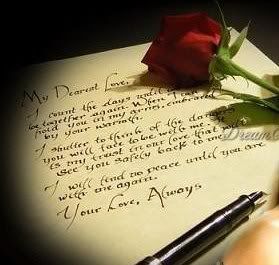 My Dearest Love,
I count the days until
be together again. When I
hold you in my arms, embraced
by your warmth.
I shutter to think of the
you will face to be with me.
is my trust in our love that
see you safely back to me.
I will find no peace until you are
with me again.
Your Love, Always